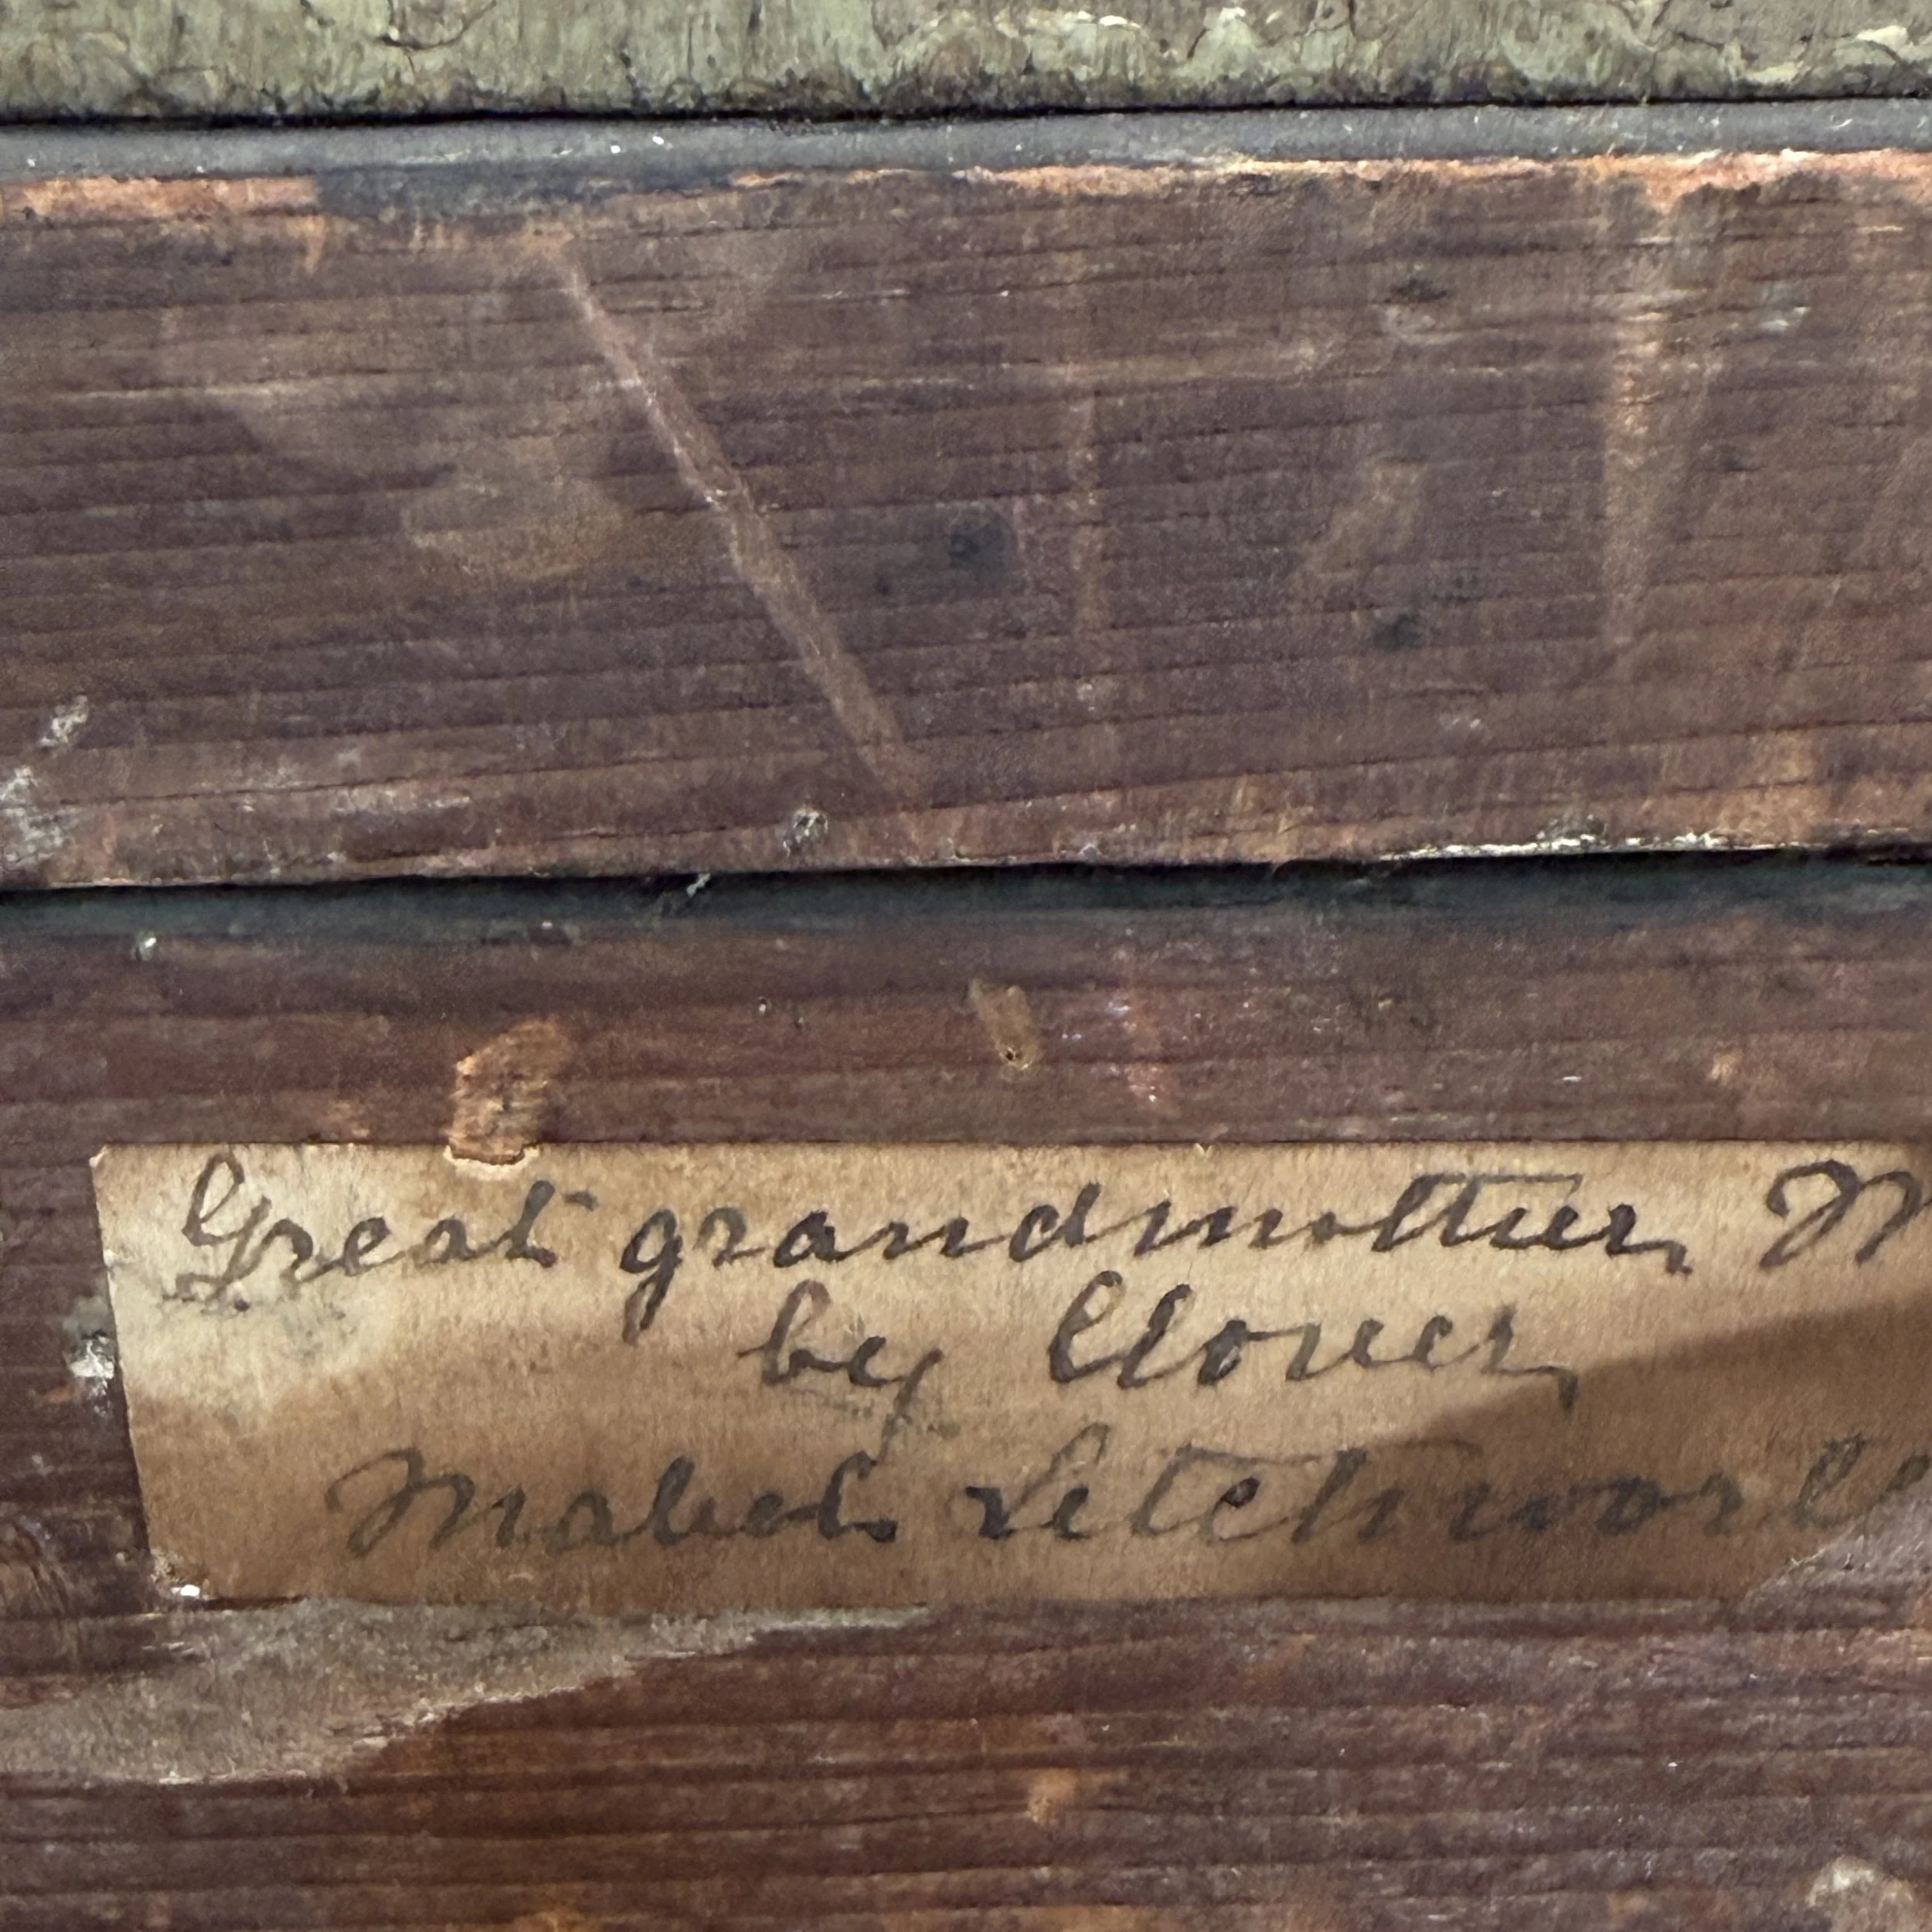 Great grandmother M
by Clover
Mabel Letchworth